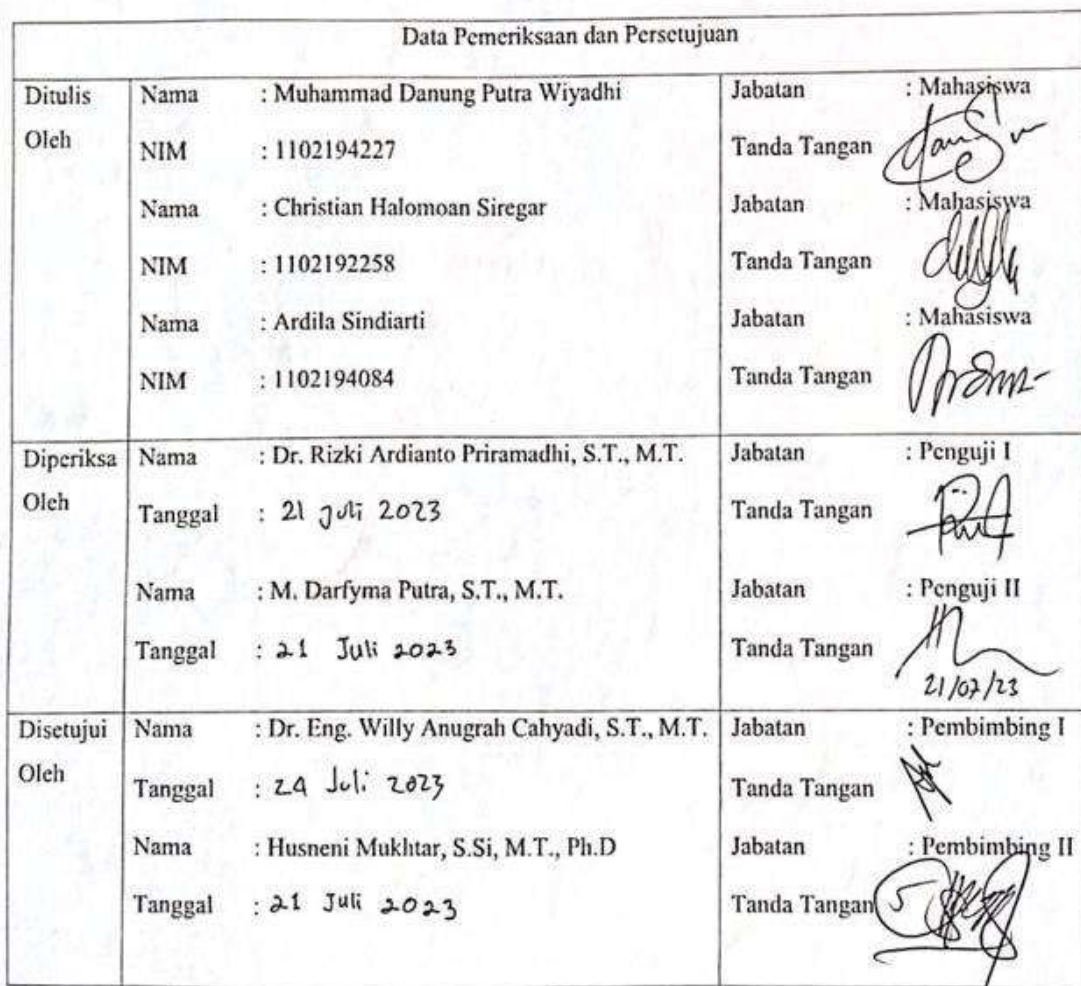 Data Pemeriksaan dan Persetujuan
Ditulis Nama : Muhammad Danung Putra Wiyadhi Jabatan : Mahasiswa
Oleh NIM : 1102194227 Tanda Tangan
Nama : Christian Halomoan Siregar Jabatan : Mahasiswa
NIM : 1102192258 Tanda Tangan
Nama : Ardila Sindiarti Jabatan : Mahasiswa
NIM : 1102194084 Tanda Tangan
Diperiksa Nama : Dr. Rizki Ardianto Priramadhi, S.T., M.T. Jabatan : Penguji I
Oleh Tanggal : 21 juli 2023 Tanda Tangan
Nama : M. Darfyma Putra, S.T., M.T. Jabatan : Penguji II
Tanggal : 21 Juli 2023 Tanda Tangan
21/07/23
Disetujui Nama : Dr. Eng. Willy Anugrah Cahyadi, S.T., M.T. Jabatan : Pembimbing I
Oleh Tanggal : 24 Juli 2023 Tanda Tangan
Nama : Husneni Mukhtar, S.Si, M.T., Ph.D Jabatan : Pembimbing II
Tanggal : 21 Juli 2023 Tanda Tangan